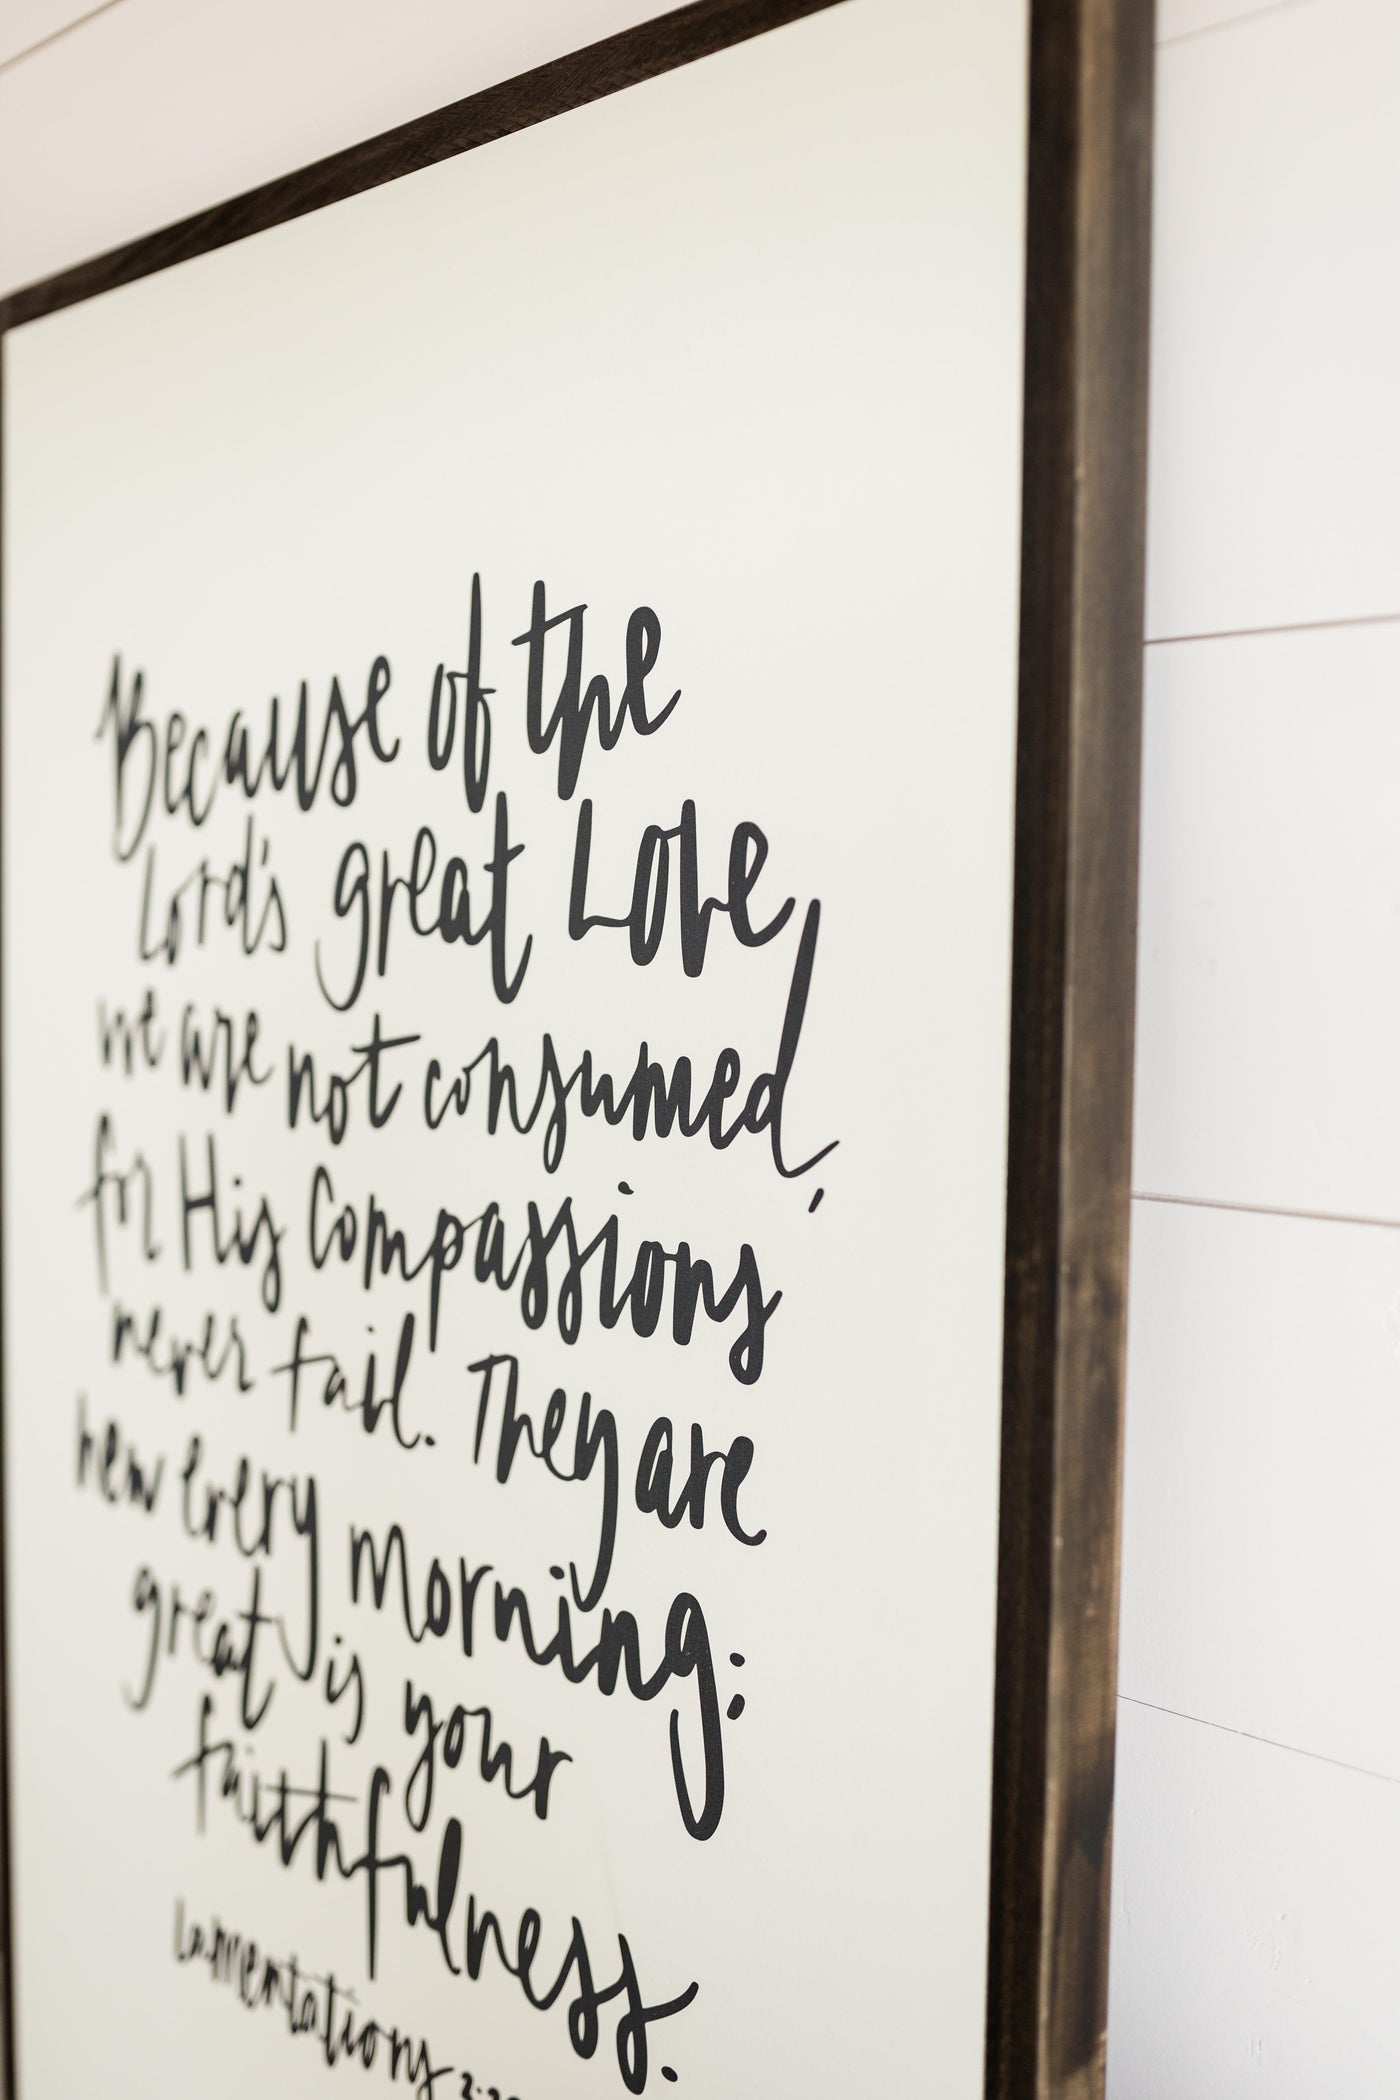 Because of the
Lord's great Love,
we are not consumed,
for His Compassions
never fail. They are
new every morning:
great is your
faithfulness.
Lamentations